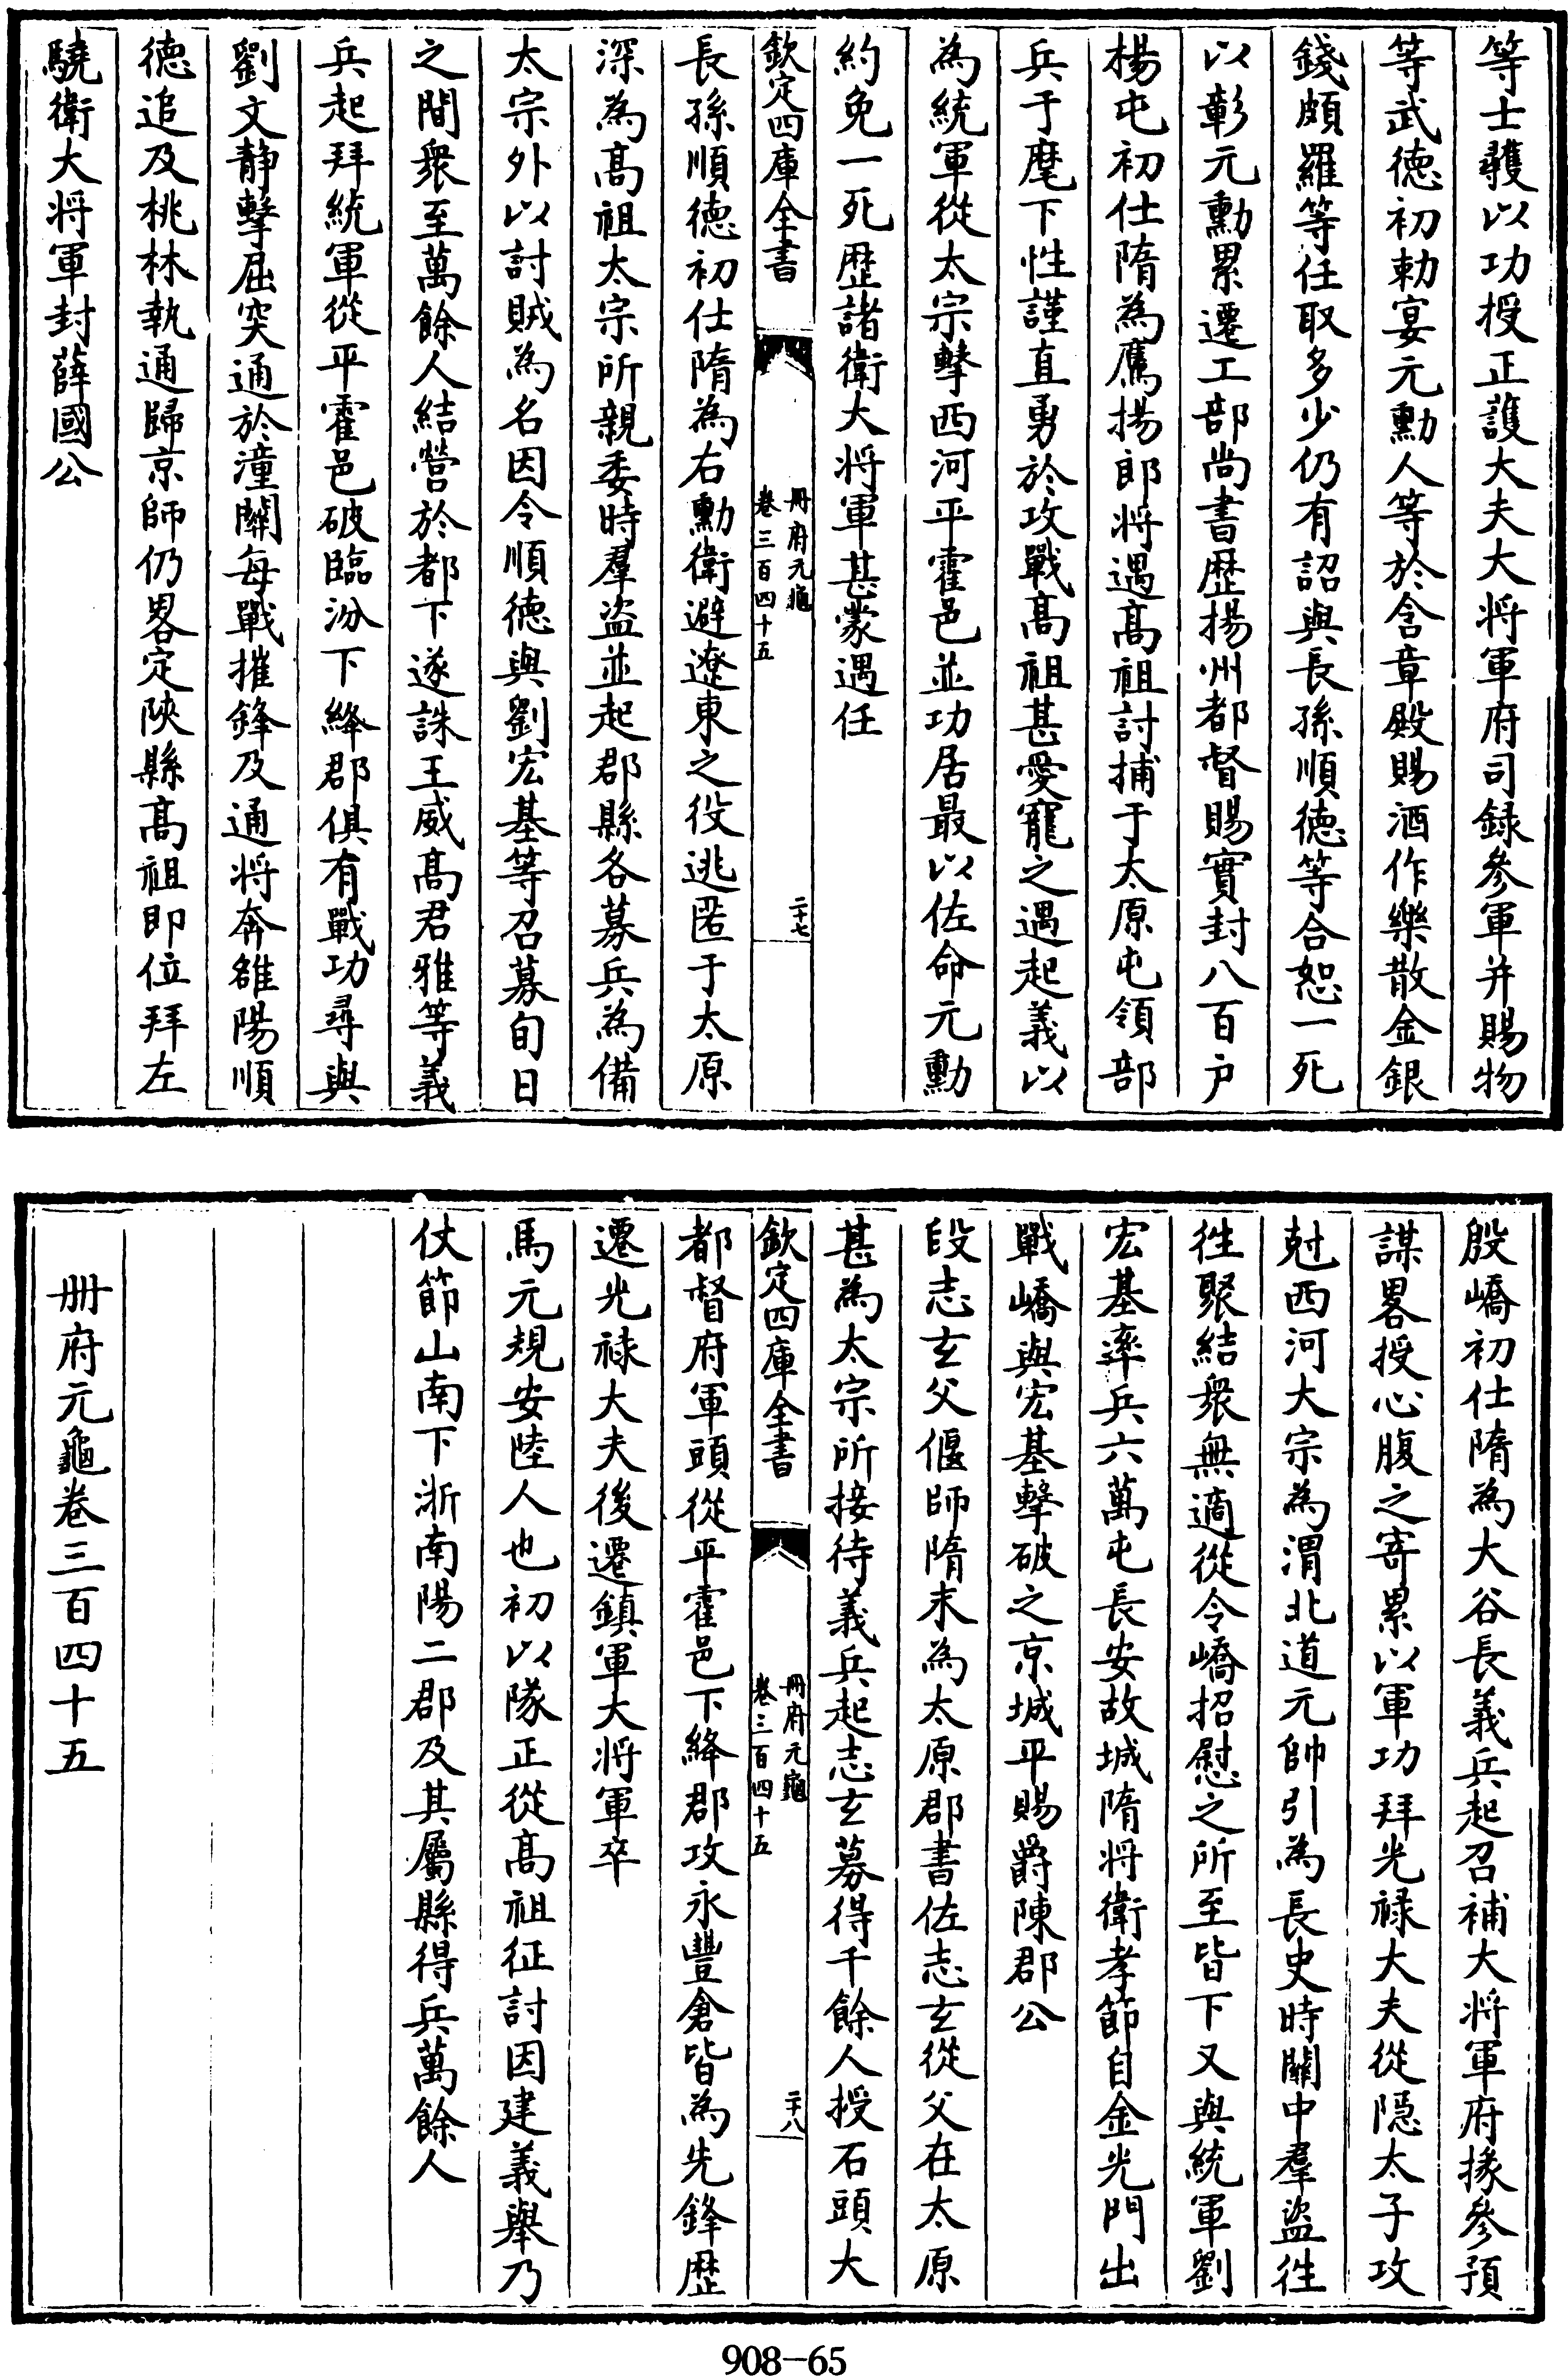 等士彠以功授正議大夫大将軍府司錄參軍并賜物
等武徳初勅宴元勳人等於含章殿賜酒作樂散金銀
錢頗羅等任取多少仍有詔與長孫順徳等合恕一死
以彰元勳累遷工部尚書歴揚州都督賜實封八百户
楊屯初仕隋為鷹揚郎将遇髙祖討捕于太原屯領部
兵于麾下性謹直勇於攻戰髙祖甚愛寵之遇起義以
為統軍從太宗擊西河平霍邑並功居最以佐命元勳
約免一死歴諸衛大将軍甚蒙遇任
欽定四庫全書
冊府元龜
卷三百四十五
二十七
長孫順徳初仕隋為右勳衛避遼東之役逃匿于太原
深為髙祖太宗所親委時羣盜並起郡縣各募兵為備
太宗外以討賊為名因令順徳與劉宏基等召募旬日
之間衆至萬餘人結營於都下遂誅王威髙君雅等義
兵起拜統軍從平霍邑破臨汾下絳郡俱有戰功尋與
劉文静擊屈突通於潼關每戰摧鋒及通将奔雒陽順
徳追及桃林執通歸京師仍畧定陜縣髙祖即位拜左
驍衛大将軍封薛國公
殷嶠初仕隋為大谷長義兵起召補大将軍府掾參預
謀畧授心腹之寄累以軍功拜光禄大夫從隠太子攻
尅西河大宗為渭北道元帥引為長史時關中羣盜徃
徃聚結衆無適從令嶠招慰之所至皆下又與統軍劉
宏基率兵六萬屯長安故城隋将衛孝節自金光門出
戰嶠與宏基擊破之京城平賜爵陳郡公
段志玄父偃師隋末為太原郡書佐志玄從父在太原
甚為太宗所接待義兵起志玄募得千餘人授石頭大
欽定四庫全書
冊府元龜
卷三百四十五
二十八
都督府軍頭從平霍邑下絳郡攻永豐倉皆為先鋒歴
遷光禄大夫後遷鎮軍大将軍卒
馬元規安陸人也初以隊正從髙祖征討因建義舉乃
仗節山南下淅南陽二郡及其屬縣得兵萬餘人
冊府元龜卷三百四十五
908-65